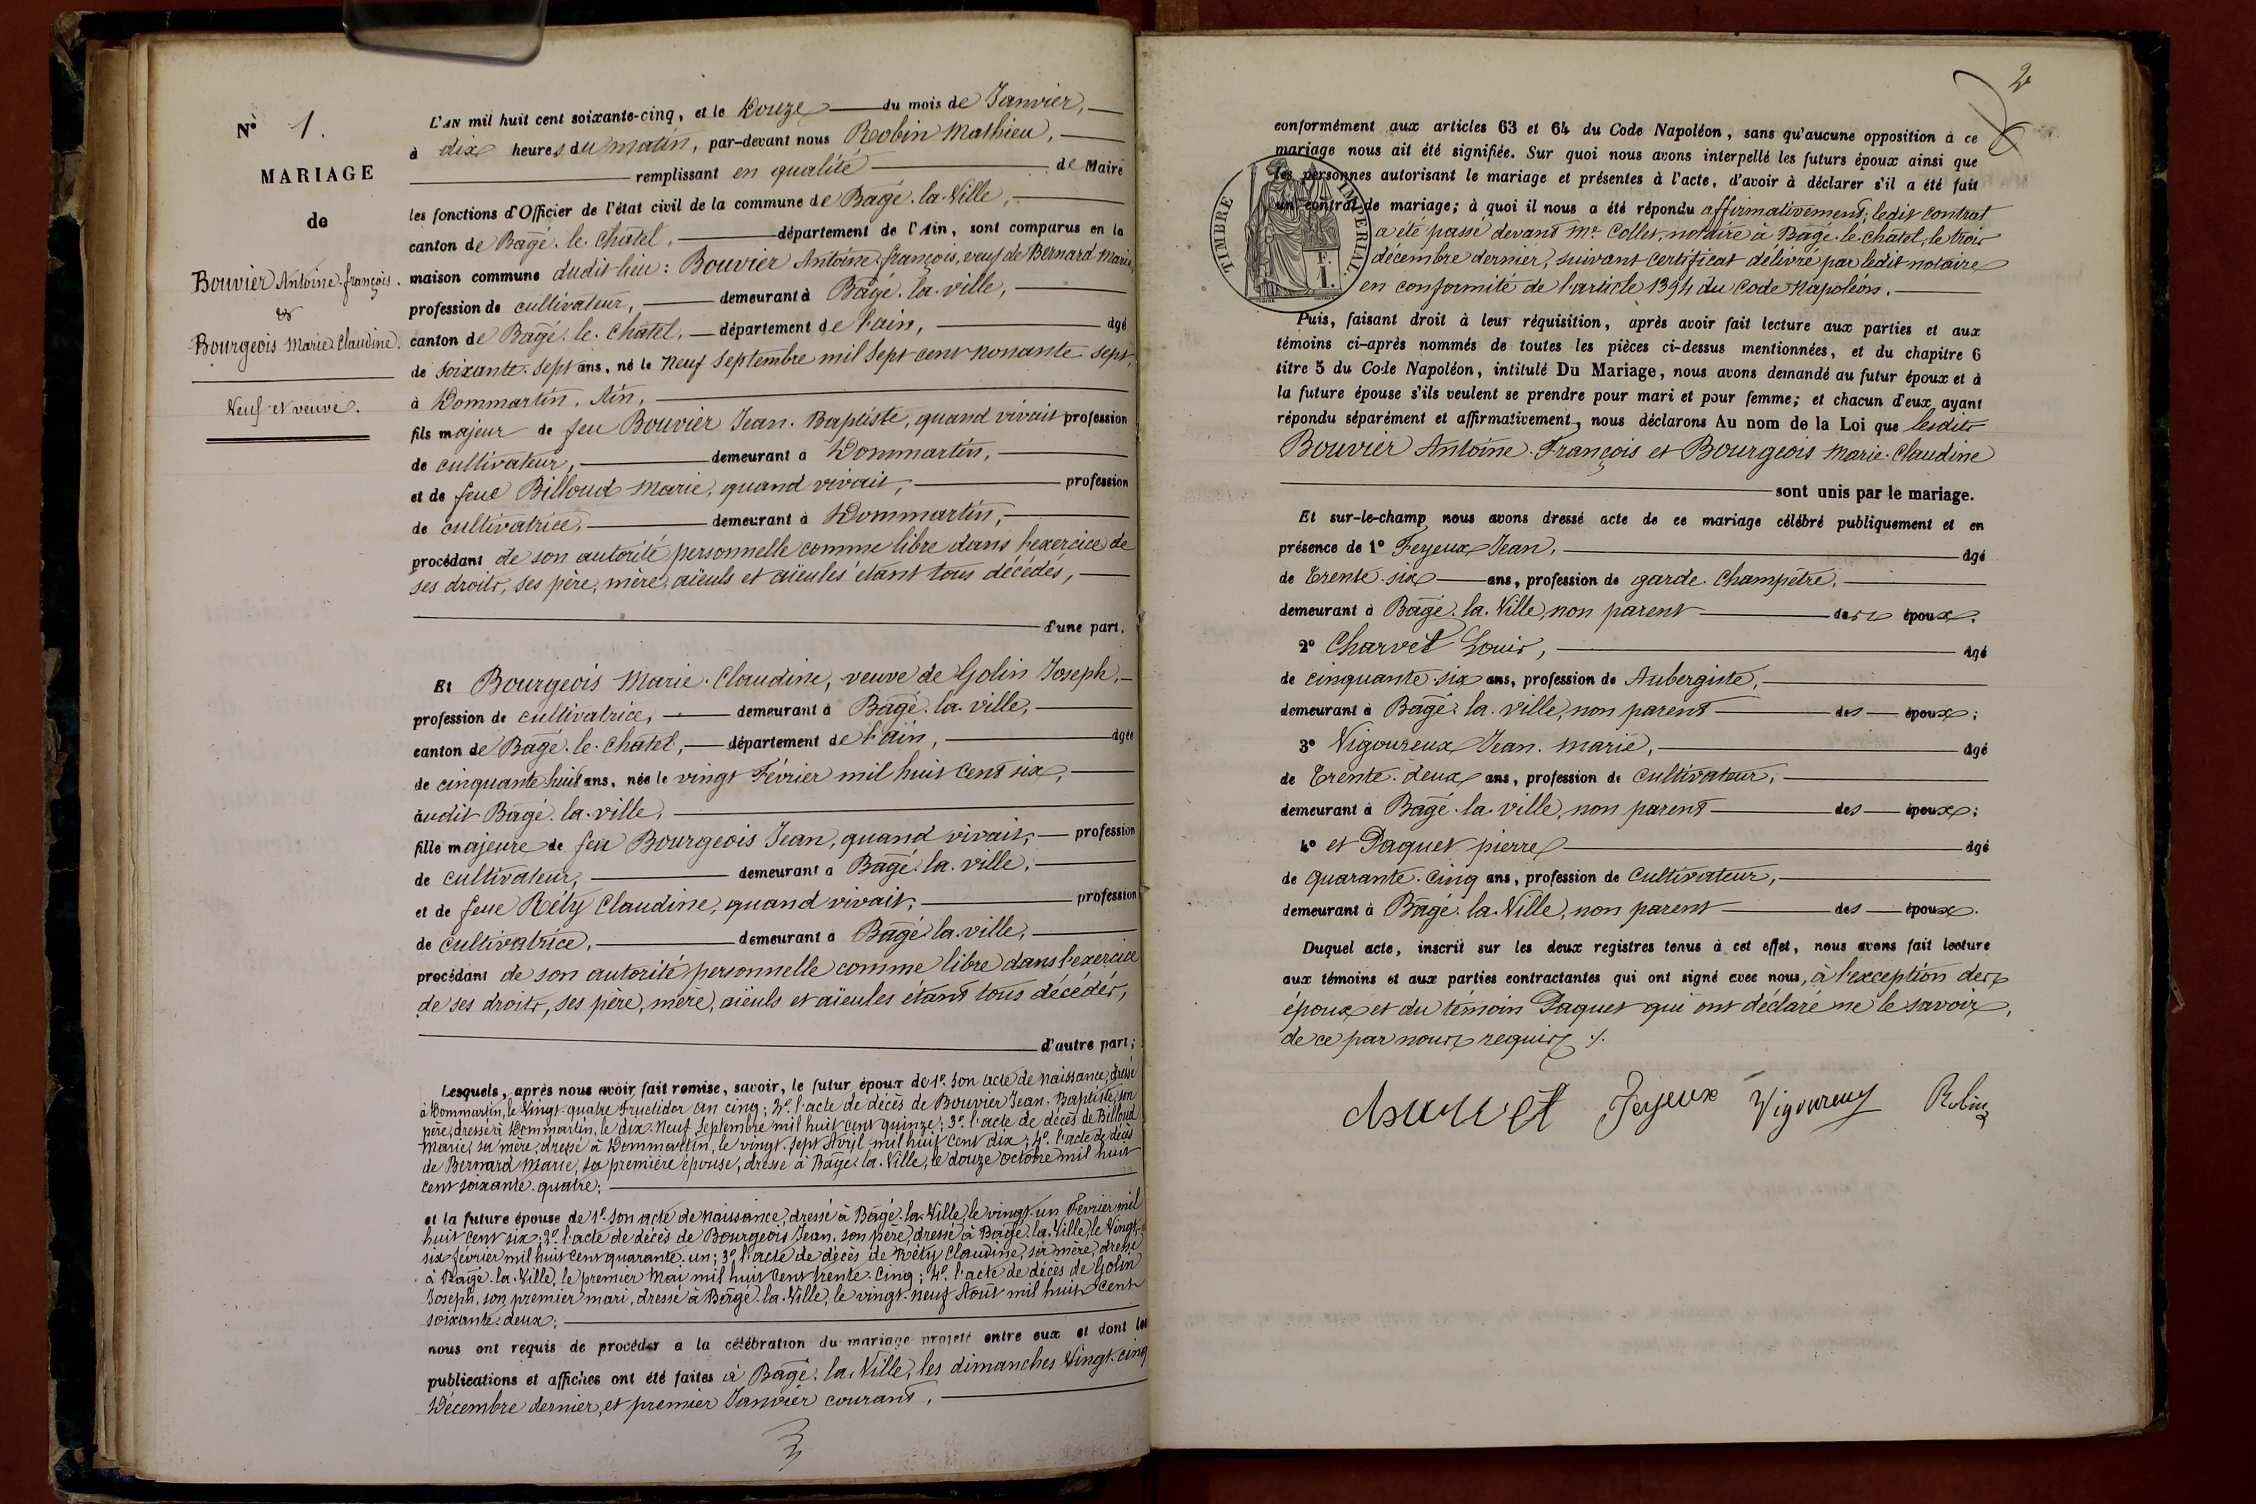 N° 1.
MARIAGE
de
Bouvier Antoine-françois.
&
Bourgeois Marie Claudine.
Veuf et veuve.
L'AN mil huit cent soixante-cinq, et le Douze du mois de Janvier,
à dix heures du matin, par-devant nous Robin Mathieu,
remplissant en qualité de Maire
les fonctions d'Officier de l'état civil de la commune de Bagé-la-Ville,
canton de Bagé-le-Châtel, département de l'Ain, sont comparus en la
maison commune dudit lieu : Bouvier Antoine-françois, veuf de Bernard Marie,
profession de cultivateur, demeurant à Bagé-la-ville,
canton de Bagé-le-Châtel, département de l'ain, âgé
de soixante-sept ans, né le neuf Septembre mil sept cent nonante-sept,
à Dommartin, Ain,
fils majeur de feu Bouvier Jean-Baptiste, quand vivait profession
de cultivateur, demeurant à Dommartin,
et de feue Billoud Marie, quand vivait, profession
de cultivatrice, demeurant à Dommartin,
procédant de son autorité personnelle comme libre dans l'exercice de
ses droits, ses père, mère, aïeuls et aïeules étant tous décédés,
d'une part.
Et Bourgeois Marie-Claudine, veuve de Golin Joseph,
profession de cultivatrice, demeurant à Bagé-la-ville,
canton de Bagé-le-Châtel, département de l'ain, âgée
de cinquante-huit ans, née le vingt Février mil huit cent six,
audit Bagé-la-ville,
fille majeure de feu Bourgeois Jean, quand vivait, profession
de cultivateur, demeurant à Bagé-la-ville,
et de feue Réty Claudine, quand vivait, profession
de cultivatrice, demeurant à Bagé-la-ville,
procédant de son autorité personnelle comme libre dans l'exercice
de ses droits, ses père, mère, aïeuls et aïeules étant tous décédés,
d'autre part;
Lesquels, après nous avoir fait remise, savoir, le futur époux de 1° son acte de naissance, dressé
à Dommartin, le Vingt-quatre Fructidor an cinq ; 2° l'acte de décès de Bouvier Jean-Baptiste, son
père, dressé à Dommartin, le dix-Neuf Septembre mil huit cent quinze ; 3° l'acte de décès de Billoud
Marie, sa mère, dressé à Dommartin, le vingt-sept Avril mil huit cent dix ; 4° l'acte de décès
de Bernard Marie, sa première épouse, dressé à Bagé-la-Ville, le douze octobre mil huit
cent soixante-quatre ;
et la future épouse de 1° son acte de naissance, dressé à Bagé-la-Ville, le vingt-un Février mil
huit cent six ; 2° l'acte de décès de Bourgeois Jean, son père, dressé à Bagé-la-Ville, le Vingt-
six février mil huit cent quarante-un ; 3° l'acte de décès de Réty Claudine, sa mère, dressé
à Bagé-la-Ville, le premier Mai mil huit cent trente-cinq ; 4° l'acte de décès de Golin
Joseph, son premier mari, dressé à Bâgé-la-Ville, le vingt-neuf Août mil huit cent
soixante-deux ;
nous ont requis de procéder à la célébration du mariage projeté entre eux et dont les
publications et affiches ont été faites à Bagé-la-Ville, les dimanches Vingt-cinq
Décembre dernier, et premier Janvier courant,
2
conformément aux articles 63 et 64 du Code Napoléon, sans qu'aucune opposition à ce
mariage nous ait été signifiée. Sur quoi nous avons interpellé les futurs époux ainsi que
les personnes autorisant le mariage et présentes à l'acte, d'avoir à déclarer s'il a été fait
un contrat de mariage; à quoi il nous a été répondu affirmativement; ledit contrat
a été passé devant Me Collet, notaire à Bâgé-le-Châtel, le trois
décembre dernier, suivant certificat délivré par ledit notaire
en conformité de l'article 1394 du Code Napoléon.
TIMBRE IMPERIAL.
F.
1.
Puis, faisant droit à leur réquisition, après avoir fait lecture aux parties et aux
témoins ci-après nommés de toutes les pièces ci-dessus mentionnées, et du chapitre 6
titre 5 du Code Napoléon, intitulé Du Mariage, nous avons demandé au futur époux et à
la future épouse s'ils veulent se prendre pour mari et pour femme; et chacun d'eux ayant
répondu séparément et affirmativement, nous déclarons Au nom de la Loi que lesdits
Bouvier Antoine-François et Bourgeois Marie-Claudine
sont unis par le mariage.
Et sur-le-champ nous avons dressé acte de ce mariage célébré publiquement et en
présence de 1° Feyeux Jean, âgé
de Trente-six ans, profession de garde-champêtre,
demeurant à Bagé-la-Ville, non parent des époux.
2° Charvet Louis, âgé
de cinquante-six ans, profession de Aubergiste,
demeurant à Bagé-la-ville, non parent des époux;
3° Vigoureux Jean-Marie, âgé
de Trente-deux ans, profession de cultivateur,
demeurant à Bagé-la-ville, non parent des époux;
4° et Paquet pierre âgé
de quarante-cinq ans, profession de cultivateur,
demeurant à Bâgé-la-Ville, non parent des époux.
Duquel acte, inscrit sur les deux registres tenus à cet effet, nous avons fait lecture
aux témoins et aux parties contractantes qui ont signé avec nous, à l'exception des
époux et du témoin Paquet qui ont déclaré ne le savoir,
de ce par nous requis ./.
Charvet Feyeux Vigoureux Robin